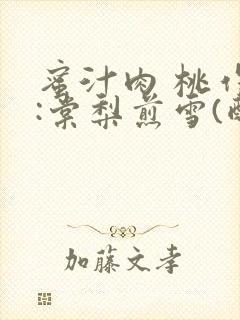 蜜汁肉桃
:棠梨煎雪(
加藤文孝